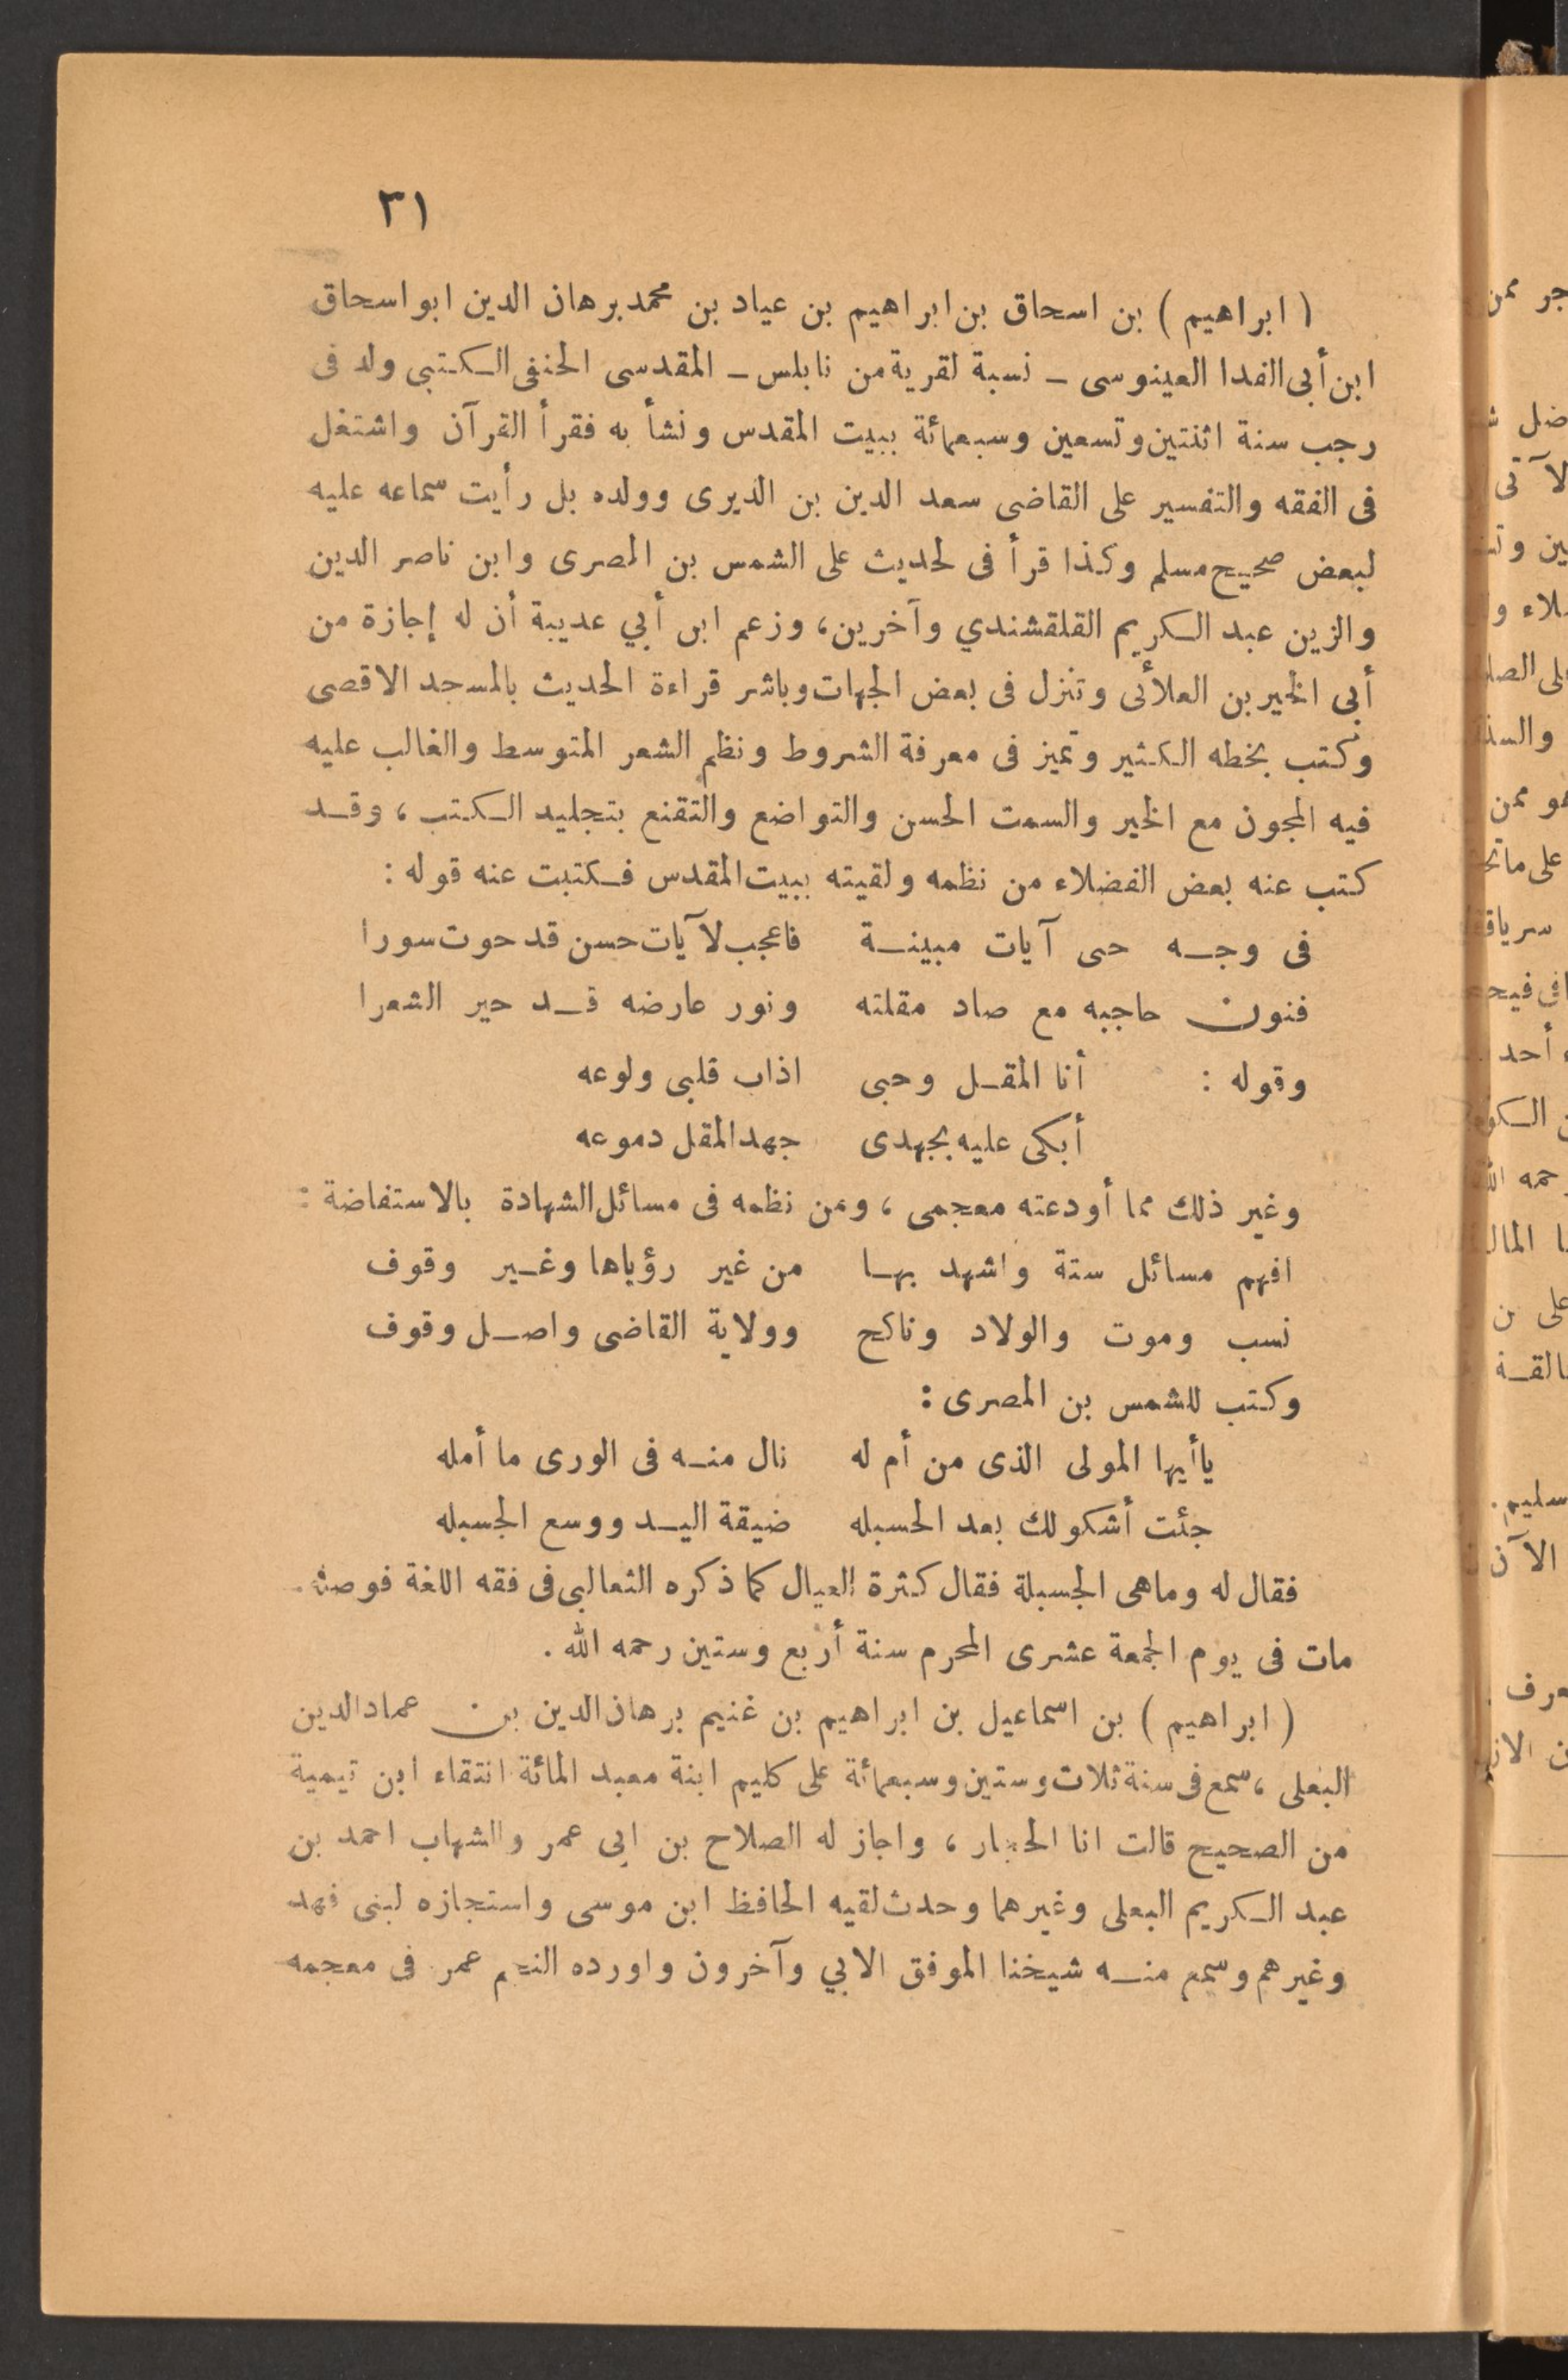 ٣١
( ابراهيم ) بن اسحاق بن ابراهيم بن عياد بن محمد برهان الدين ابو اسحاق
ابن أبى الفدا العينوسى ـ نسبة لقرية من نابلس ـ المقدسى الحنفى الكتبي ولد فى
رجب سنة اثنتين وتسعين وسبعمائة ببيت المقدس ونشأ به فقرأ القرآن واشتغل
فى الفقه والتفسير على القاضى سعد الدين بن الديرى وولده بل رأيت سماعه عليه
لبعض صحيح مسلم وكذا قرأ فى لحديث على الشمس بن المصرى وابن ناصر الدين
والزين عبد الكريم القلقشندي وآخرين، وزعم ابن أبي عديبة أن له إجازة من
أبى الخير بن العلائى وتنزل فى بعض الجهات وباشر قراءة الحديث بالمسجد الاقصى
وكتب بخطه الكثير وتميز فى معرفة الشروط ونظم الشعر المتوسط والغالب عليه
فيه المجون مع الخير والسمت الحسن والتواضع والتقنع بتجليد الكتب ، وقد
كتب عنه بعض الفضلاء من نظمه ولقيته ببيت المقدس فكتبت عنه قوله :
فى وجه حى آيات مبينة فاعجب لآيات حسن قد حوت سورا
فنون حاجبه مع صاد مقلته ونور عارضه قد حير الشعرا
وقوله : أنا المقل وحبى اذاب قلبى ولوعه
أبكى عليه بجهدى جهد المقل دموعه
وغير ذلك مما أودعته معجمى ، ومن نظمه فى مسائل الشهادة بالاستفاضة :
افهم مسائل ستة واشهد بها من غير رؤياها وغير وقوف
نسب وموت والولاد وناكح وولاية القاضى واصل وقوف
وكتب للشمس بن المصرى :
ياأيها المولى الذى من أم له نال منه فى الورى ما أمله
جئت أشكو لك بعد الحسبله ضيقة اليد ووسع الجسبله
فقال له وماهى الجسبلة فقال كثرة العيال كما ذكره الثعالبى فى فقه اللغة فوصله
مات فى يوم الجمعة عشرى المحرم سنة أربع وستين رحمه الله .
( ابراهيم ) بن اسماعيل بن ابراهيم بن غنيم برهان الدين بن عماد الدين
البعلى ، سمع فى سنة ثلاث وستين وسبعمائة على كليم ابنة معبد المائة انتقاء ابن تيمية
من الصحيح قالت انا الحجار ، واجاز له الصلاح بن ابى عمر والشهاب احمد بن
عبد الكريم البعلى وغيرهما وحدث لقيه الحافظ ابن موسى واستجازه لبنى فهد
وغيرهم وسمع منه شيخنا الموفق الابي وآخرون واورده النجم عمر فى معجمه